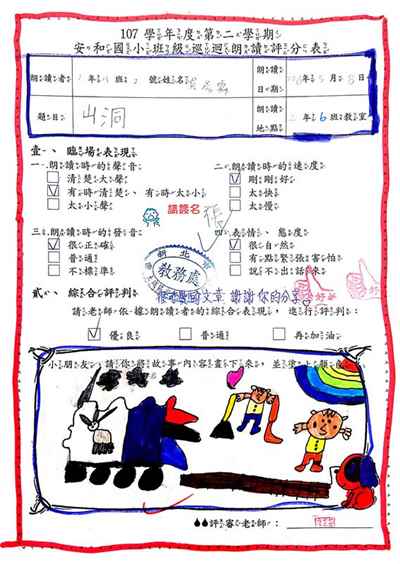 107 學年度第二學期
安和國小班級巡迴朗讀評分表
朗讀者 年 班 2 號姓名 朗讀日期 年 5 月 8 日
題目 山洞 朗讀地點 二年 6 班教室
壹、臨場表現
一、朗讀時的聲音 二、朗讀時的速度
清楚大聲 ✓ 剛剛好
✓ 有時清楚、有時太小 太快
太小聲 太慢
請簽名
三、朗讀時的發音 四、表情、態度
✓ 很正確 ✓ 很自然
普通 有點緊張害怕
不標準 說不出話來
新北
教務處
貳、綜合評判 文章 謝謝你的分享。
請老師依據朗讀者的綜合表現,進行評判:
✓ 優良 普通 再加油
小朋友,請你將故事內容畫下來,並塗上顏色
評審老師: